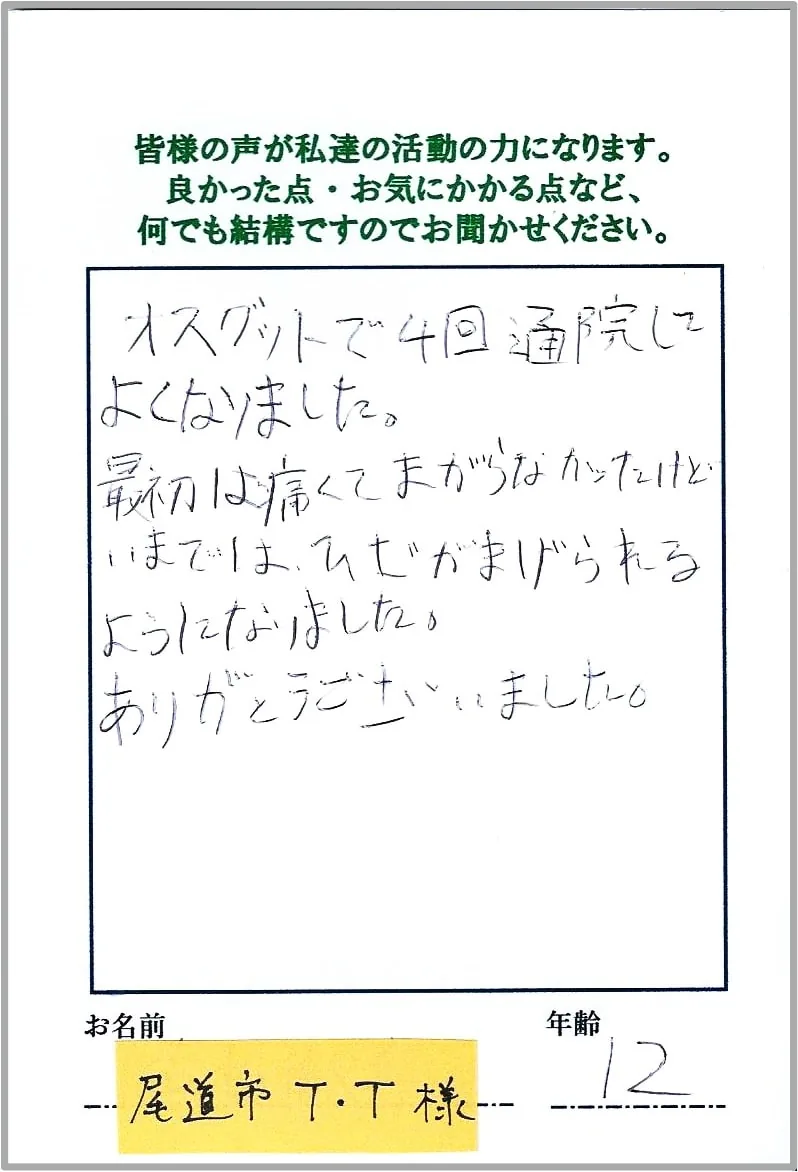 皆様の声が私達の活動の力になります。
良かった点・お気にかかる点など、
何でも結構ですのでお聞かせください。
オスグットで4回通院して
よくなりました。
最初は痛くてまがらなかったけど
いまでは、ひざがまげられる
ようになりました。
ありがとうございました。
お名前
年齢
尾道市 T・T 様
12